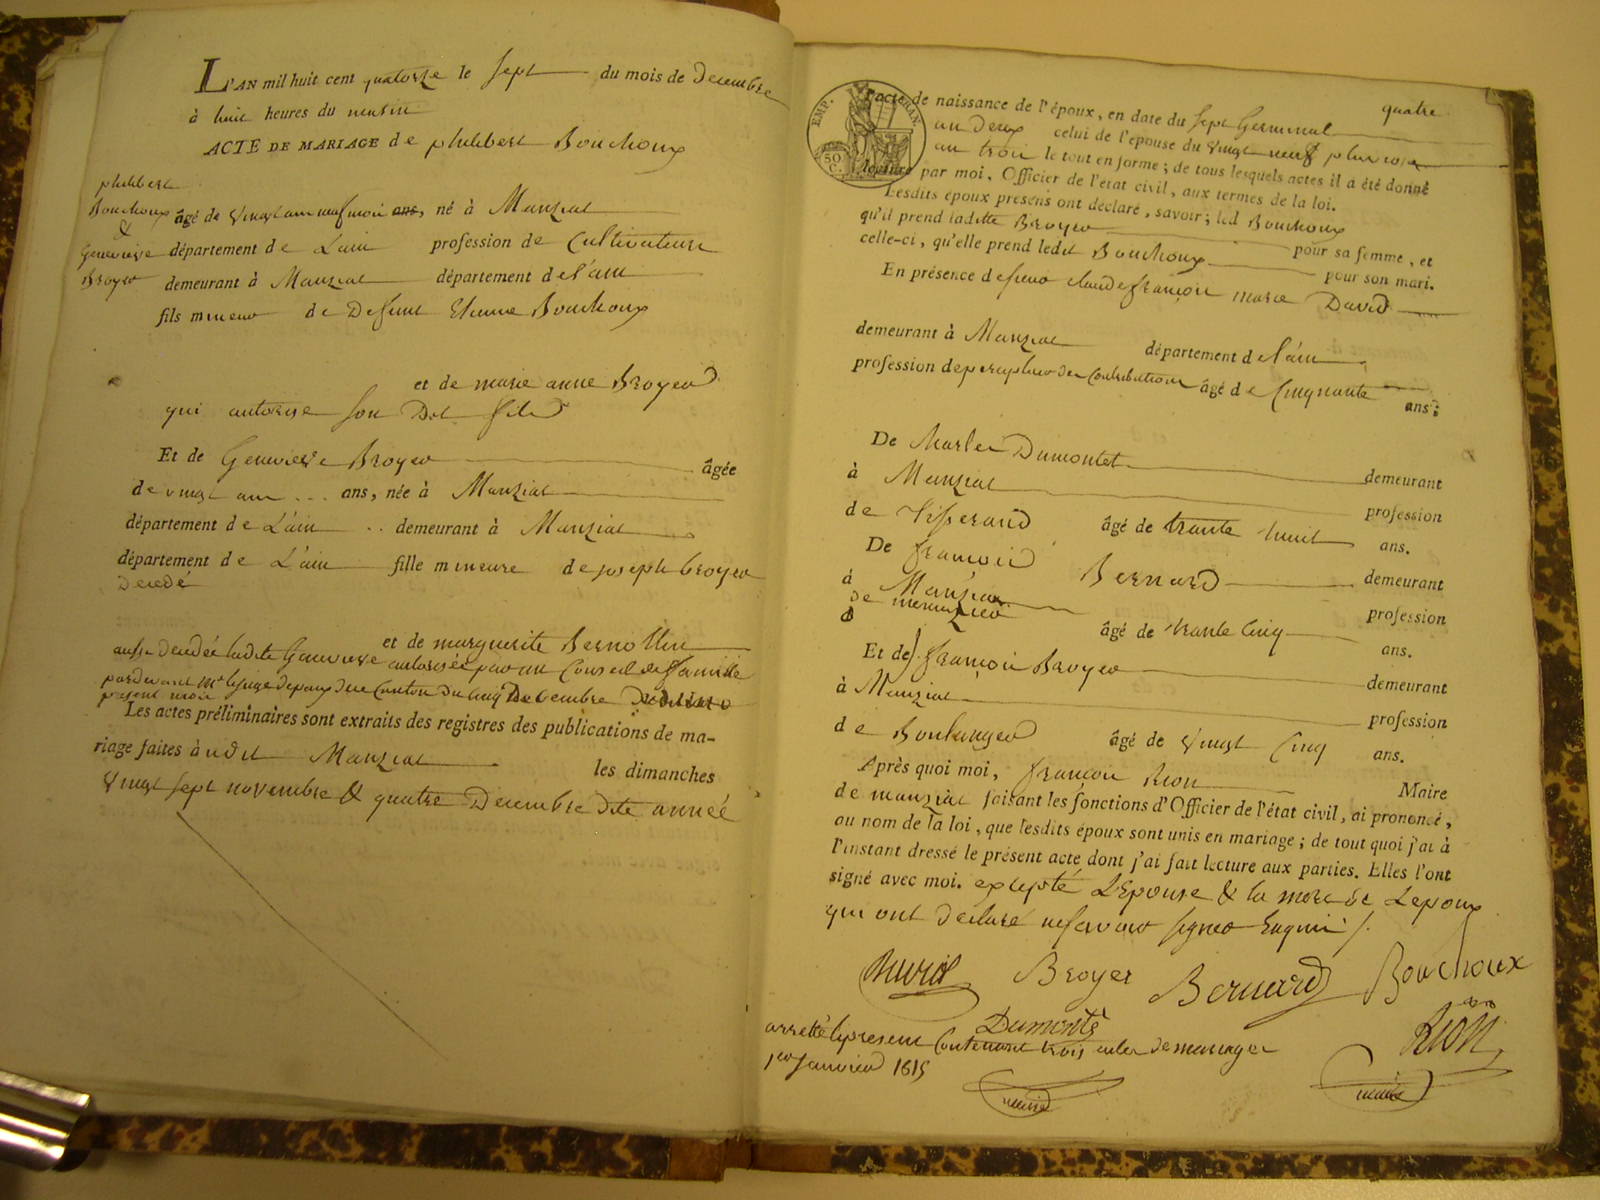 L'AN mil huit cent quatorze le sept du mois de decembre
à huit heures du matin
ACTE DE MARIAGE de philibert Bouchoux
philibert
Bouchoux
&
Genevieve
Broyer
âgé de vingt ans neuf mois ans, né à Manziat
département de L'ain profession de Cultivateur
demeurant à Manziat département de l'ain
fils mineur de Defunt Etienne Bouchoux
et de marie anne Broyer
qui autorise son Dit fils
Et de Genevieve Broyer âgée
de vingt ans ... ans, née à Manziat
département de L'ain .. demeurant à Manziat
département de L'ain fille mineure de joseph broyer
decedé
et de marguerite Bernollin
aussi decedée ladite Genevieve autorisée par un Conseil de famille
pardevant Mr le juge de paix du Canton du cinq Decembre
present mois
Les actes préliminaires sont extraits des registres des publications de ma-
riage faites àudit Manziat les dimanches
vingt sept novembre & quatre Decembre dite année
quatre
EMP. FRAN.
50 C.
l'acte de naissance de l'époux, en date du sept Germinal
an deux celui de l'épouse du vingt neuf pluviose
an trois le tout en forme; de tous lesquels actes il a été donné
lecture par moi, Officier de l'état civil, aux termes de la loi.
Lesdits époux présens ont déclaré, savoir; led Bouchoux
qu'il prend laditte Broyer pour sa femme, et
celle-ci, qu'elle prend ledit Bouchoux pour son mari.
En présence de sieur claude françois marie David
demeurant à Manziat département de l'ain
profession de percepteur des Contributions âgé de Cinquante ans;
De Marler Dumontet demeurant
à Manziat profession
de Tisserand âgé de trante huit ans.
De françois Bernard demeurant
à Manziat profession
de menuzier
âgé de trante cinq ans.
Et de françois Broyer demeurant
à Manziat profession
de Boulanger âgé de vingt Cinq ans.
Après quoi moi, françois Rion Maire
de manziat faisant les fonctions d'Officier de l'état civil, ai prononcé,
au nom de la loi, que lesdits époux sont unis en mariage; de tout quoi j'ai à
l'instant dressé le présent acte dont j'ai fait lecture aux parties. Elles l'ont
signé avec moi. excepté L'Epouse & la mere de Lepoux
qui ont declaré ne savoir signer Enquis /.
David Broyer Bernard Bouchoux
Dumonté Rion
arretté le present Contenant trois actes de mariages
1er Janvier 1815